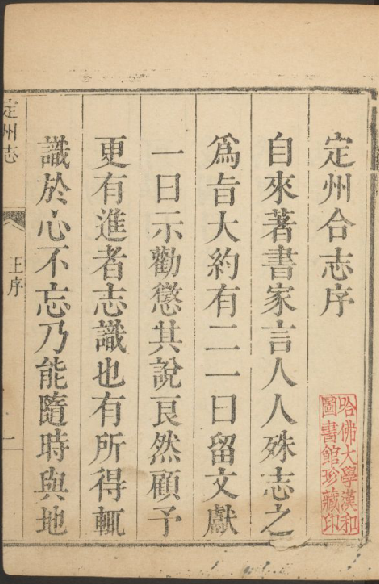 定州合志序
自來著書家言人人殊志之
爲旨大約有二一曰留文獻
一曰示勸懲其說良然顧予
更有進者志識也有所得輒
識於心不忘乃能隨時與地
定州志
王序
一
哈佛大學漢和
圖書館珍藏印